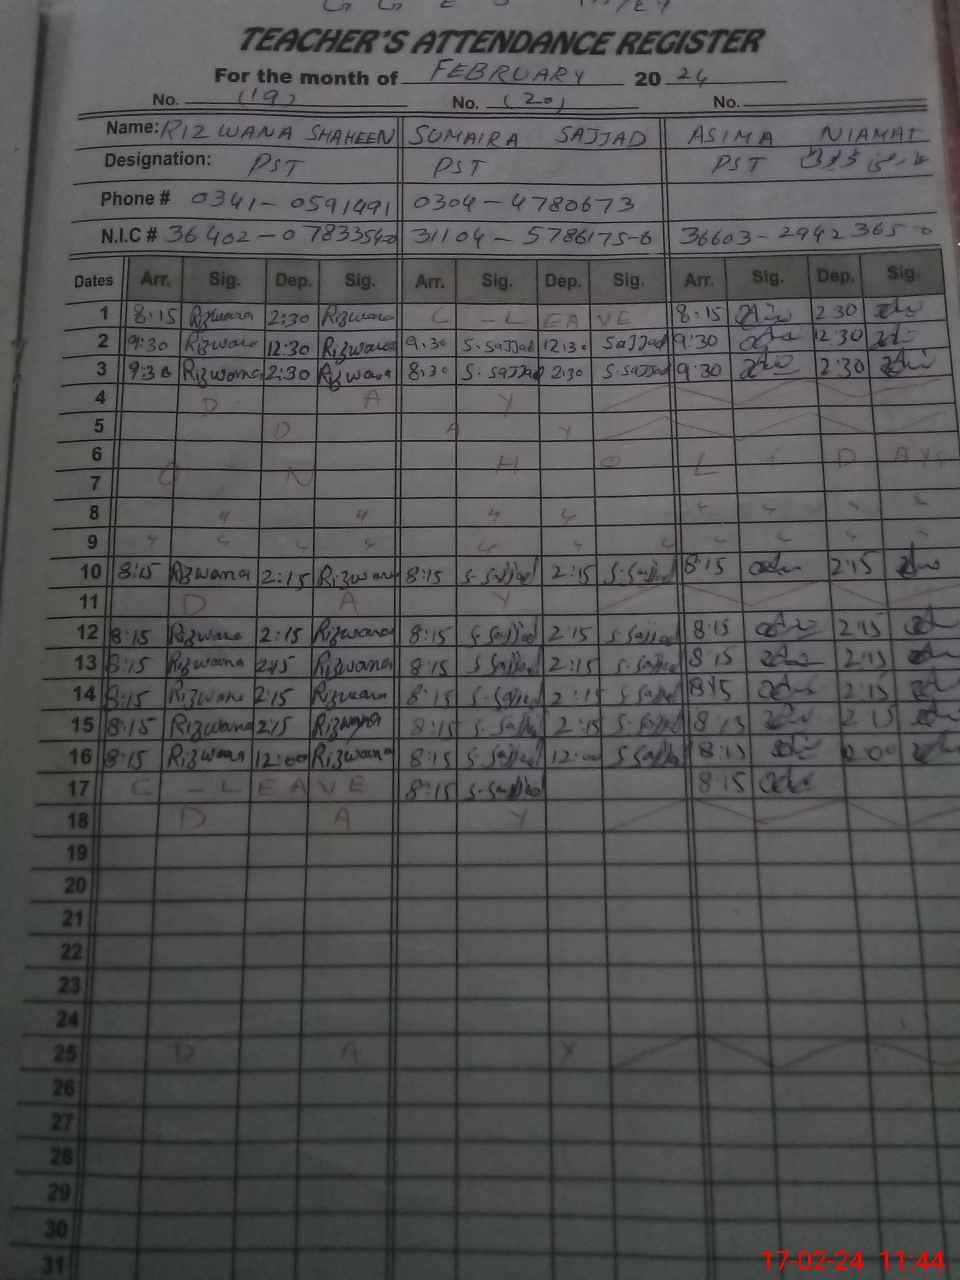 TEACHER'S ATTENDANCE REGISTER
For the month of FEBRUARY 20 24
No. (19) No. (20) No.
Name: RIZWANA SHAHEEN SUMAIRA SAJJAD ASIMA NIAMAT
Designation: PST PST PST
Phone # 0341-0591491 0304-4780673
N.I.C # 36402-0783354-0 31104-5786175-6 36603-2942365-0
Dates Arr. Sig. Dep. Sig. Arr. Sig. Dep. Sig. Arr. Sig. Dep. Sig.
1 8:15 Rizwana 2:30 Rizwana C - LEAVE 8:15 2:30
2 9:30 Rizwana 12:30 Rizwana 9:30 S.Sajjad 12:30 Sajjad 9:30 12:30
3 9:30 Rizwana 2:30 Rizwana 8:30 S.Sajjad 2:30 S.Sajjad 9:30 2:30
4 D A Y
5 D A Y
6 H O L I D A Y S
7 O N
8 " " " "
9
10 8:15 Rizwana 2:15 Rizwana 8:15 S.Sajjad 2:15 S.Sajjad 8:15 2:15
11 D A Y
12 8:15 Rizwana 2:15 Rizwana 8:15 S.Sajjad 2:15 S.Sajjad 8:15 2:15
13 8:15 Rizwana 2:15 Rizwana 8:15 S.Sajjad 2:15 S.Sajjad 8:15 2:15
14 8:15 Rizwana 2:15 Rizwana 8:15 S.Sajjad 2:15 S.Sajjad 8:15 2:15
15 8:15 Rizwana 2:15 Rizwana 8:15 S.Sajjad 2:15 S.Sajjad 8:15 2:15
16 8:15 Rizwana 12:00 Rizwana 8:15 S.Sajjad 12:00 S.Sajjad 8:15
17 C - LEAVE 8:15 S.Sajjad 8:15
18 D A Y
19
20
21
22
23
24
25 D A Y
26
27
28
29
30
31
17-02-24 11:44